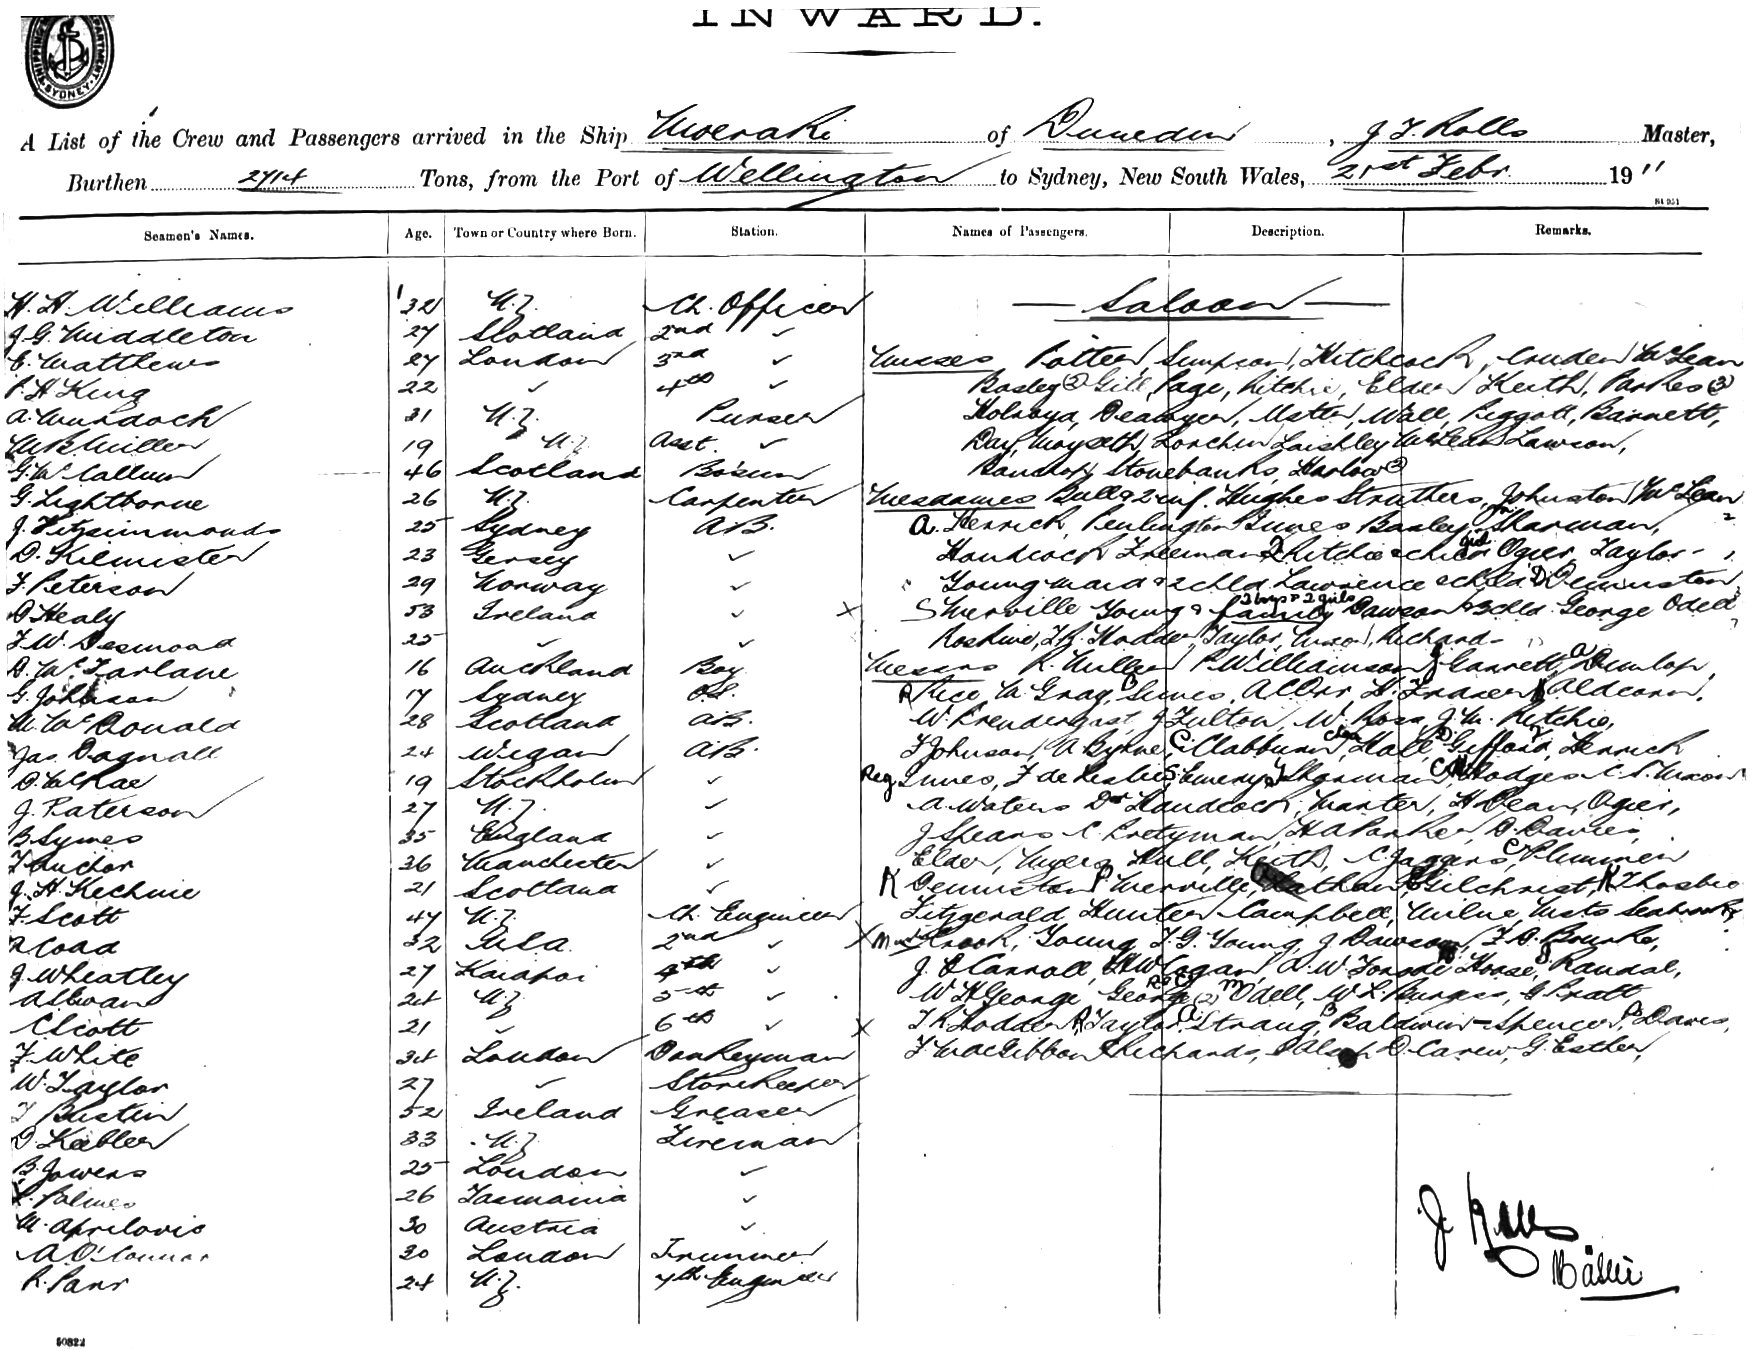 INWARD.
SHIPPING DEPARTMENT. SYDNEY.
A List of the Crew and Passengers arrived in the Ship Moeraki of Dunedin, J F. Rolls Master,
Burthen 2714 Tons, from the Port of Wellington to Sydney, New South Wales, 21st Febr. 1911
Seamen's Names. Age. Town or Country where Born. Station. Names of Passengers. Description. Remarks.
H. H. Williams 32 N.Z. Ch. Officer — Saloon —
J G. Middleton 27 Scotland 2nd ✓
E. Matthews 27 London 3rd ✓ Misses Potter, Simpson, Hitchcock, Cruden McLean
P. H King 22 ✓ 4th ✓ Basley (2) Gill, Page, Ritchie, Elder Keith, Parkes (3)
A. Murdoch 31 N.Z. Purser Holroyd, Wall, Piggott, Barnett,
W B Miller 19 N.Z. Asst. ✓ Day, Laishley McLean Lawson,
G. McCallum 46 Scotland Bosun Stonebanks, Harlow
G. Lightborne 26 N.Z. Carpenter Mesdames Bull & 2 inf. Hughes Struthers, Johnston McLean
J. Fitzsimmonds 25 Sydney A.B. A. Herrick, Penlington Innes Basley, Sharman,
D. Kilmister 23 Jersey ✓ Handcock Freeman Ritchie & child Ogier, Taylor
F. Peterson 29 Norway ✓ Young maid & 2 chld Lawrence & chld Denniston
D Healy 53 Ireland ✓ Merville Young & family 2 boys & 2 girls Dawson & 3 chld. George Odell
F. W. Desmond 25 ✓ ✓ F.R. Hodder, Taylor, Richards
D. McFarlane 16 Auckland Boy Messrs R. Miller P. Williamson J Garrett, A Dunlop,
G. Johnson 17 Sydney O.S. Rice, W. Gray, Innes, A Orr, H. Frazer Aldcorn,
M. McDonald 28 Scotland A.B. W. Prendergast, J Fulton, W. Ross, J. M. Ritchie,
Jas. Dagnall 24 Wigan A.B. F Johnson, A Byrne, C. Clabburn, Hall, Gifford, Herrick
D. McRae 19 Stockholm ✓ Reg Innes, F de Leslie Emery, Sharman, Hodges
J. Paterson 27 N.Z. ✓ A. Waters Dr Handcock, H Dean, Ogier,
B Symes 35 England ✓ J Spears C. Pretyman, H A Parker, D. Davies,
F Anchor 36 Manchester ✓ Elder, Myers, Hull, Keith, C. Plummer
J. H. Kechnie 21 Scotland ✓ Denniston Merville, Gilchrist,
F. Scott 47 N.Z. Ch. Engineer Fitzgerald Hunter Campbell, Milne
R Coad 32 2nd ✓ Krook, Young, F. G. Young, J Dawson, F. O. Bourke,
J. Wheatley 27 Kaiapoi 4th ✓ J. O Carroll, House, Randal,
A Swan 24 N.Z. 5th ✓ W H George George (2) Odell, W R. Burgess, G Pratt
C Scott 21 ✓ 6th ✓ F R Hodder Taylor, Strang, Baldwin-Spencer, Davis,
F. White 34 London Donkeyman F MacGibbon Richards, D. Carew, G. Esther,
W. Taylor 27 ✓ Storekeeper
T Bustin 52 Ireland Greaser
D. Keebler 33 N.Z Fireman
B. Jowers 25 London ✓
Palmer 26 Tasmania ✓
M. Aprilovis 30 Austria ✓
A. O'Connor 30 London Trimmer
R. Parr 24 N.Z. 7th Engineer
J Rolls
Master
50822